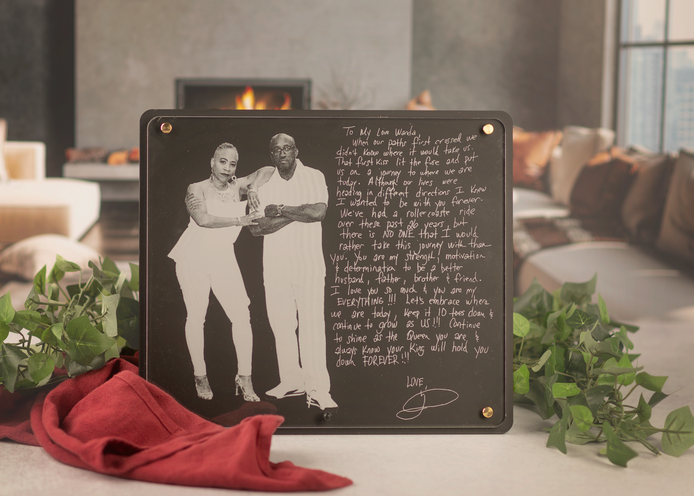 To My Love Wanda,
When our paths first crossed we
didn't know where it would take us.
That first kiss lit the fire and put
us on a journey to where we are
today. Although our lives were
heading in different directions I knew
I wanted to be with you forever.
We've had a rollercoaste ride
over these past 26 years, but
there is NO ONE that I would
rather take this journey with than
you. You are my strength, motivation
& determination to be a better
husband, father, brother & friend.
I love you so much & you are my
EVERYTHING!!! Let's embrace where
we are today, keep it 10 toes down &
continue to grow as US!!! Continue
to shine as the Queen you are &
always know your King will hold you
down FOREVER!!!
LOVE,